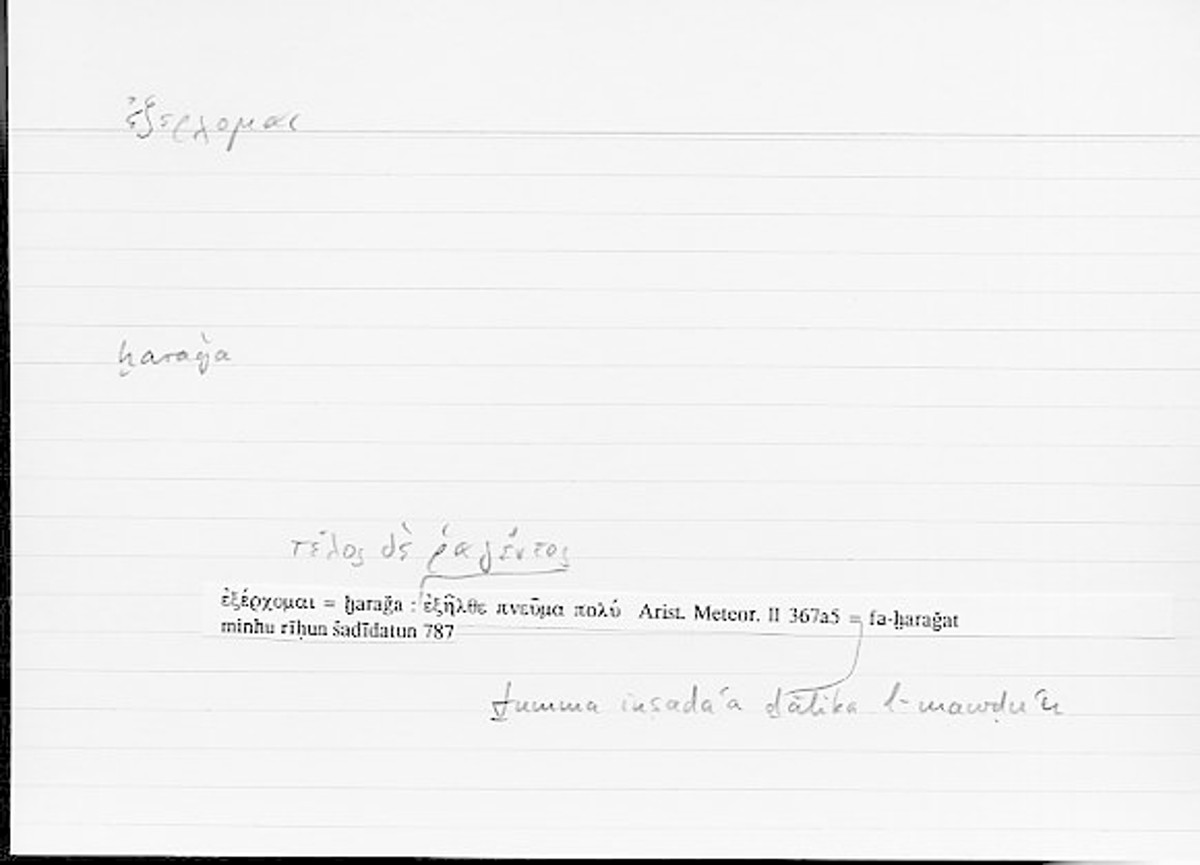 ἐξέρχομαι
ḫaraǧa
τέλος δὲ ῥαγέντος
ἐξέρχομαι = ḫaraǧa : ἐξῆλθε πνεῦμα πολύ Arist. Meteor. II 367a5 = fa-ḫaraǧat
minhu rīḥun šadīdatun 787
ṯumma inṣadaʿa ḏālika l-mawḍuʿu